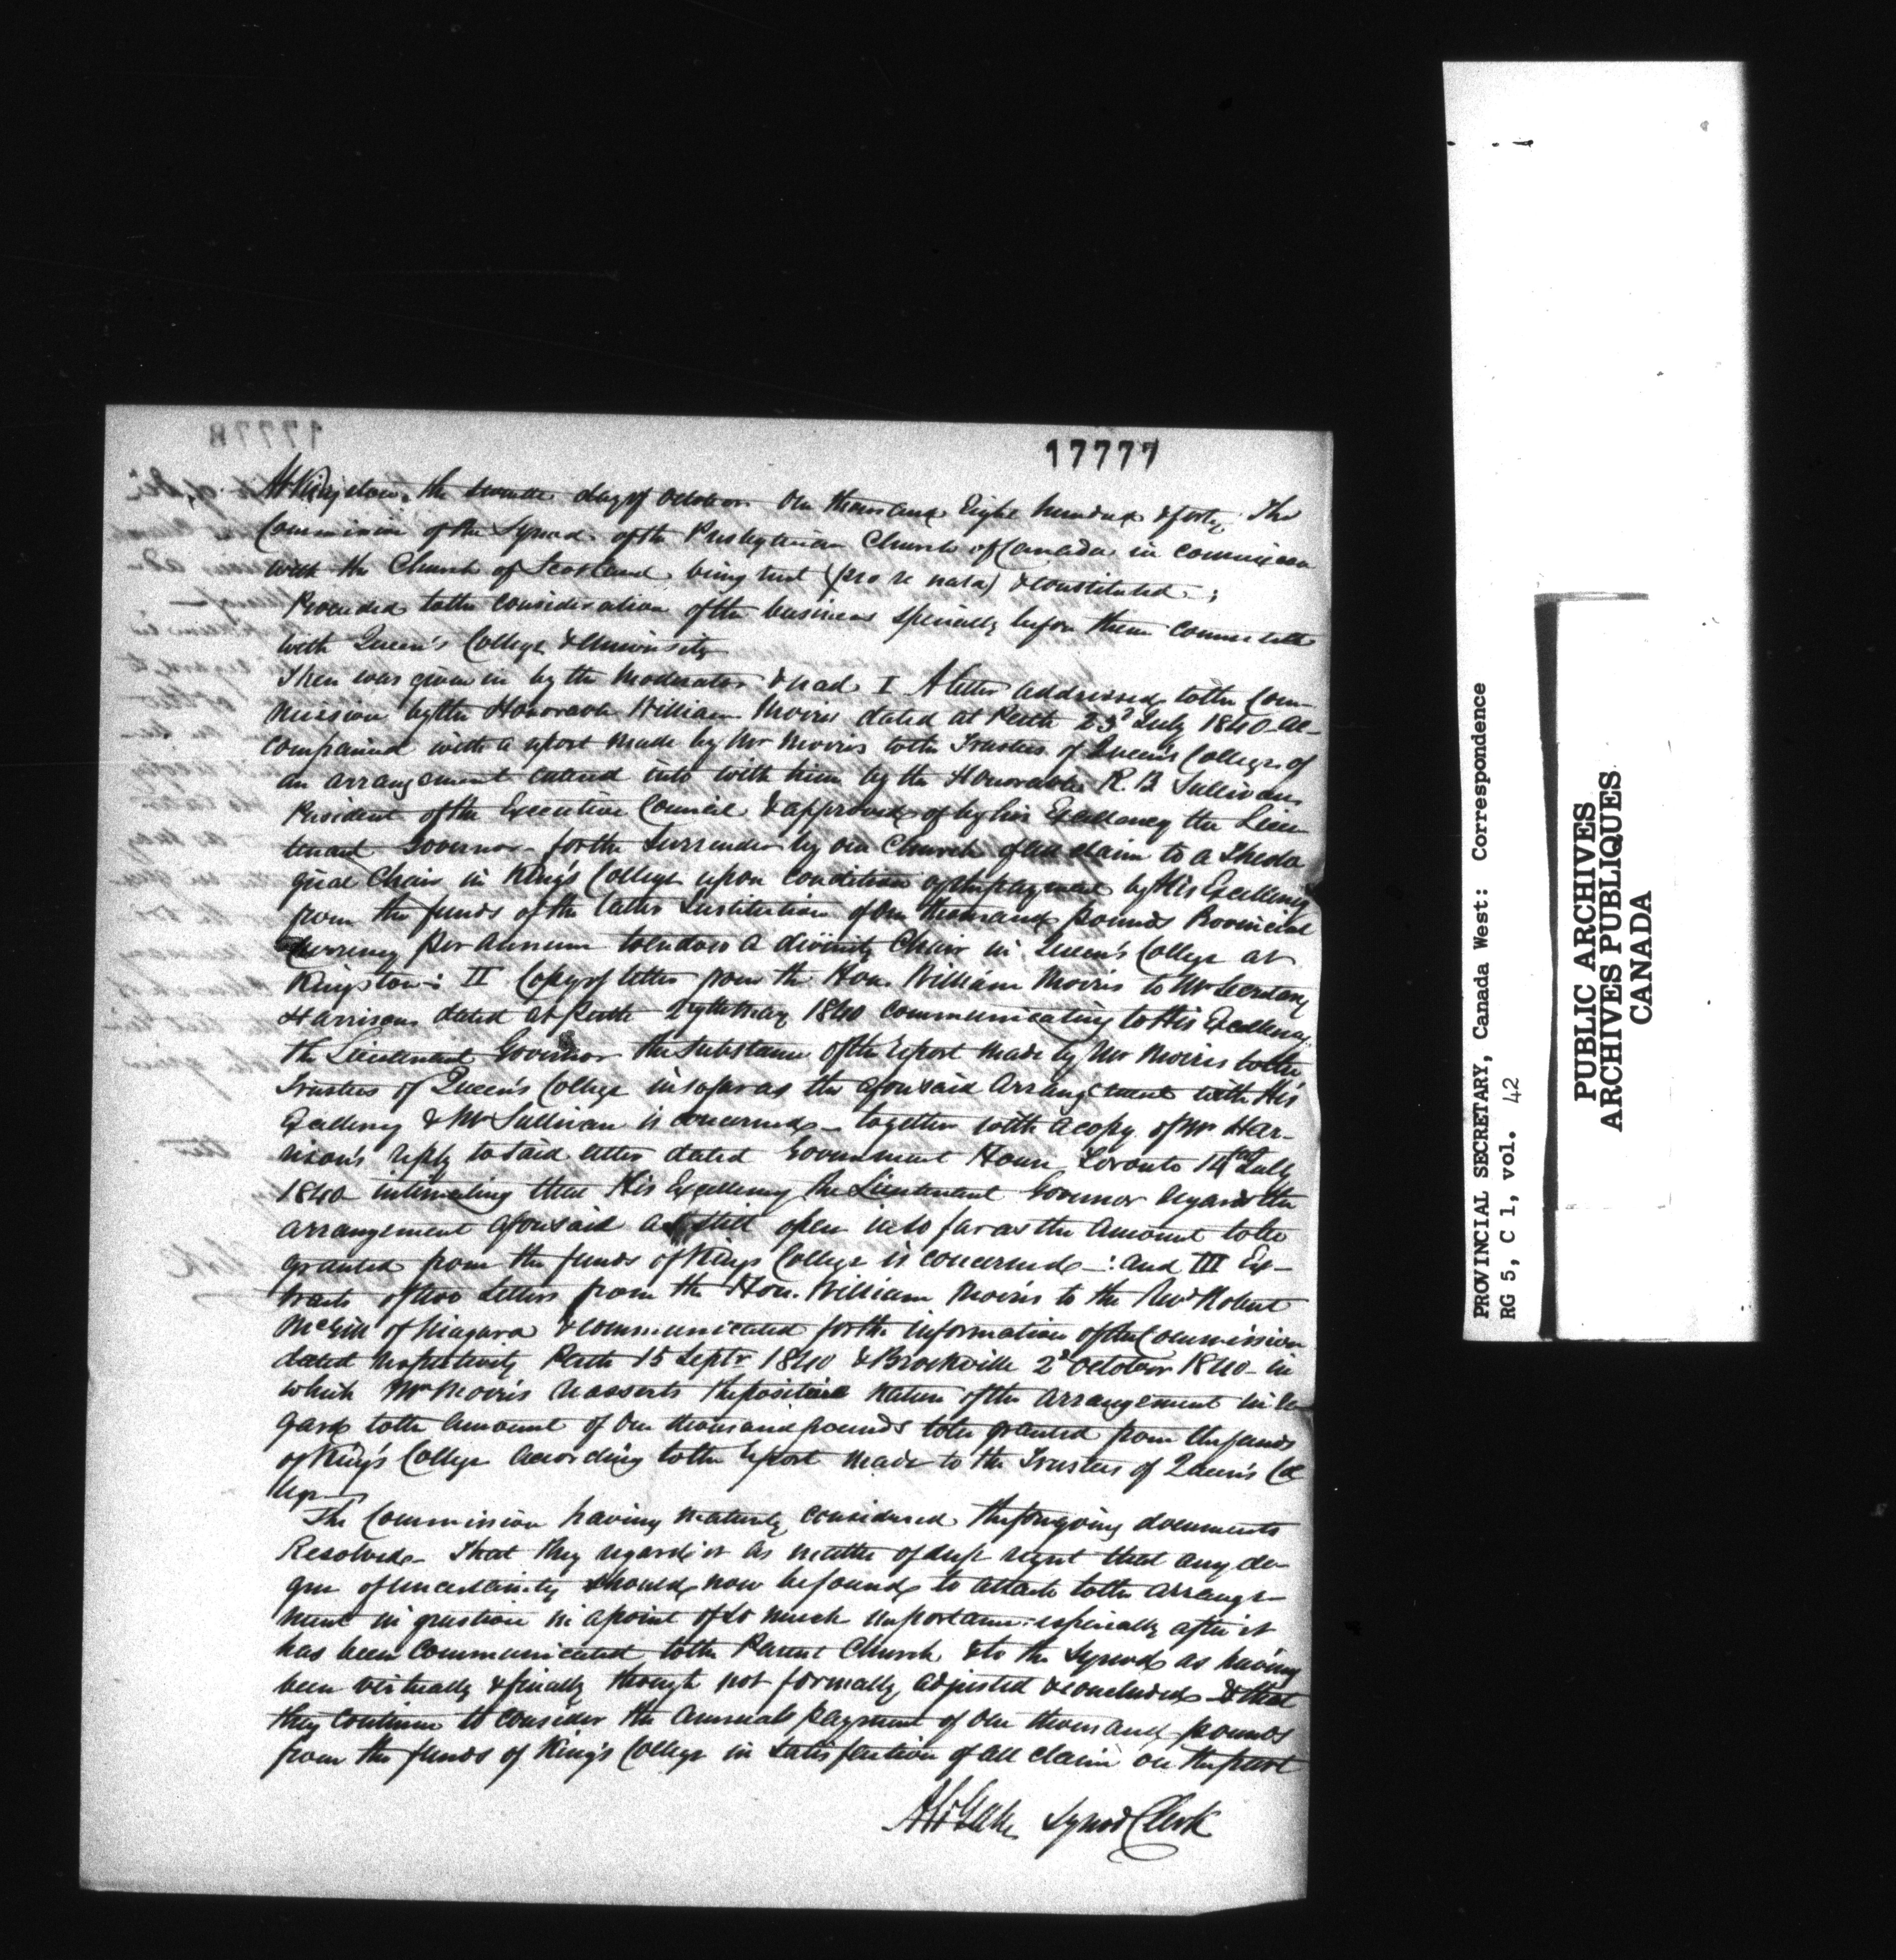 17777
At Kingston the day of October One thousand Eight hundred & forty. The
Commission of the Synod of the Presbyterian Church of Canada in connexion
with the Church of Scotland being met (pro re nata) & constituted;
Proceeded to the consideration of the business specially before them connected
with Queen's College & University
There was given in by the Moderator & read I A letter addressed to the Com-
mission by the Honorable William Morris dated at Perth 23d July 1840 ac-
companied with a report made by Mr Morris to the Trustees of Queen's College of
an arrangement entered into with him by the Honorable R. B Sullivan
President of the Executive Council & approved of by his Excellency the Lieu
tenant Governor for the Surrender by our Church of all claim to a Theolo
gical Chair in King's College upon condition of the payment by His Excellency
from the funds of the latter Institution of One thousand pounds Provincial
Currency per annum to endow a divinity Chair in Queen's College at
Kingston: II Copy of letter from the Hon. William Morris to Mr Secretary
Harrison dated at Perth May 1840 communicating to His Excellency
the Lieutenant Governor the substance of the report made by Mr Morris to the
Trustees of Queen's College in so far as the aforesaid arrangement with His
Excellency & Mr Sullivan is concerned - together with a copy of Mr Har-
rison's reply to said letter dated Government House Toronto 14th July
1840 intimating that His Excellency the Lieutenant Governor regards the
arrangement aforesaid as still open in so far as the amount to be
granted from the funds of Kings College is concerned -: and III Ex-
tracts of two Letters from the Hon. William Morris to the Revd Robert
McGill of Niagara & communicated for the information of the Commission
dated respectively Perth 15 Septr 1840 & Brockville 2d October 1840 - in
which Mr Morris reasserts the positive nature of the arrangement in re
gard to the amount of One thousand pounds to be granted from the funds
of King's College according to the report made to the Trustees of Queen's Col
lege
The Commission having maturely considered the foregoing documents
Resolved - That they regard it as matter of deep regret that any de-
gree of uncertainty should now be found to attach to the arrange-
ment in question in a point of so much importance especially after it
has been communicated to the Parent Church & to the Synod as having
been virtually & finally though not formally adjusted & concluded & that
they continue to consider the annual payment of One thousand pounds
from the funds of King's College in satisfaction of all claim on the part
Synod Clerk
PROVINCIAL SECRETARY, Canada West: Correspondence
RG 5, C 1, vol. 42
PUBLIC ARCHIVES
ARCHIVES PUBLIQUES
CANADA